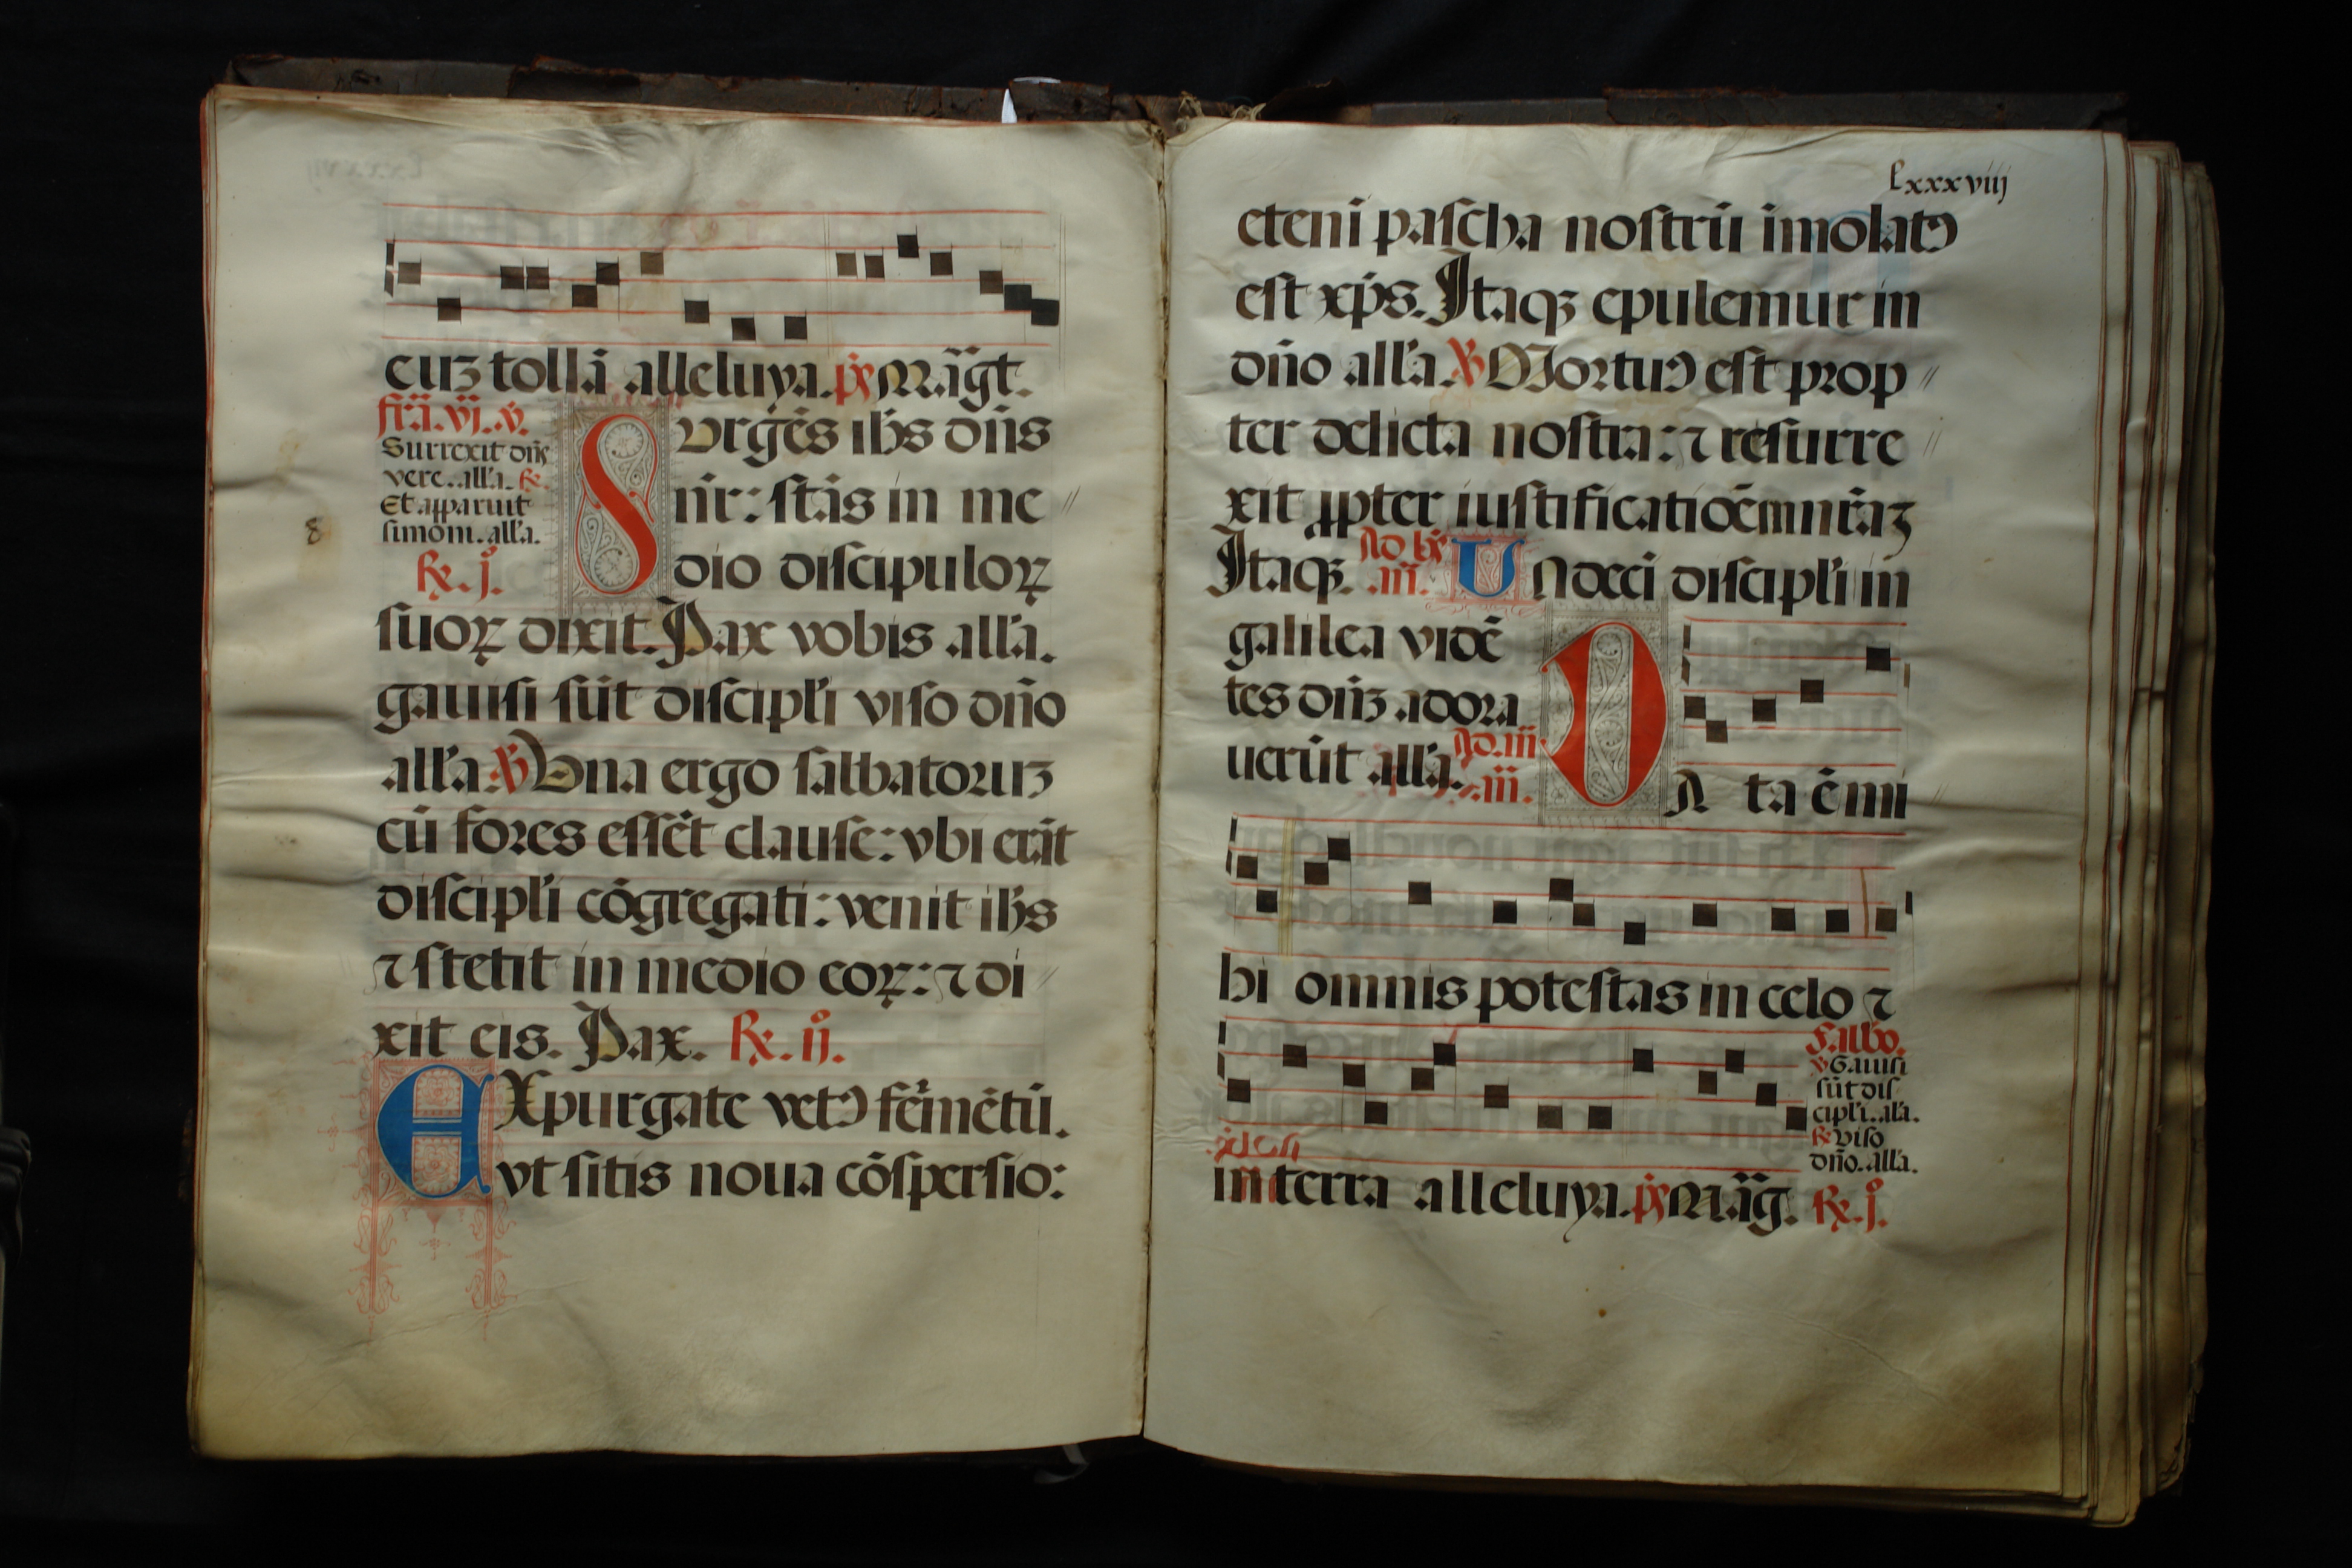 cuꝫ tollā alleluya. p̄s Māgt.
fr̄a. vj. v̄.
Surrexit dn̄s
vere. all'a. ℟.
Et apparuit
simoni. all'a.
℟. jº.
Surgēs ih̄s dn̄s
nr̄: stās in me〃
dio discipuloꝝ
suoꝝ dixit. Pax vobis all'a.
gauisi sūt discipl'i viso dn̄o
all'a. ℣ Una ergo sabbatoruꝫ
cū fores essēt clause: vbi erāt
discipl'i cōgregati: venit ih̄s
⁊ stetit in medio eoꝝ: ⁊ di〃
xit eis. Pax. ℟. ijº.
EXpurgate vetꝰ fermētū.
vt sitis noua cōspersio:
Lxxxviij
eteni pascha nostrū imolatꝰ
est xp̄s. Itaqꝫ epulemur in
dn̄o all'a. ℣ Mortuꝰ est prop〃
ter delicta nostra: ⁊ resurre〃
xit ꝓpter iustificatiōem nr̄aꝫ
Itaqꝫ. Ad bn̄s
.an̄.
Undeci discipl'i in
galilea vidē
tes dn̄ꝫ adora
uerūt all'a. Ad. m̄.
.an̄.
DA ta ē mi〃
hi omnis potestas in celo ⁊
Sabbo.
℣ Gauisi
sūt dis
cipl'i. al'a.
℟ viso
dn̄o. all'a.
in terra alleluya. p̄s Māg. ℟. jº.